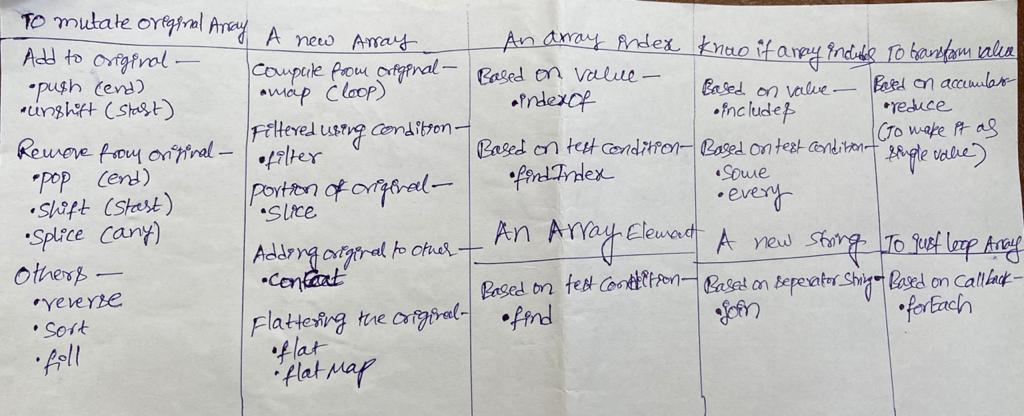 To mutate original Array
Add to original —
• push (end)
• unshift (start)
Remove from original —
• pop (end)
• shift (start)
• splice (any)
Others —
• reverse
• sort
• fill
A new Array
Compute from original —
• map (loop)
Filtered using condition —
• filter
Portion of original —
• slice
Adding original to other —
• concat
Flattering the original —
• flat
• flatMap
An array index
Based on value —
• indexOf
Based on test condition —
• findIndex
An Array Element
Based on test condition —
• find
Know if array includes
Based on value —
• includes
Based on test condition —
• some
• every
A new string
Based on seperator string —
• join
To transform value
Based on accumular
• reduce
(To make it as
single value)
To just loop Array
Based on callback —
• forEach